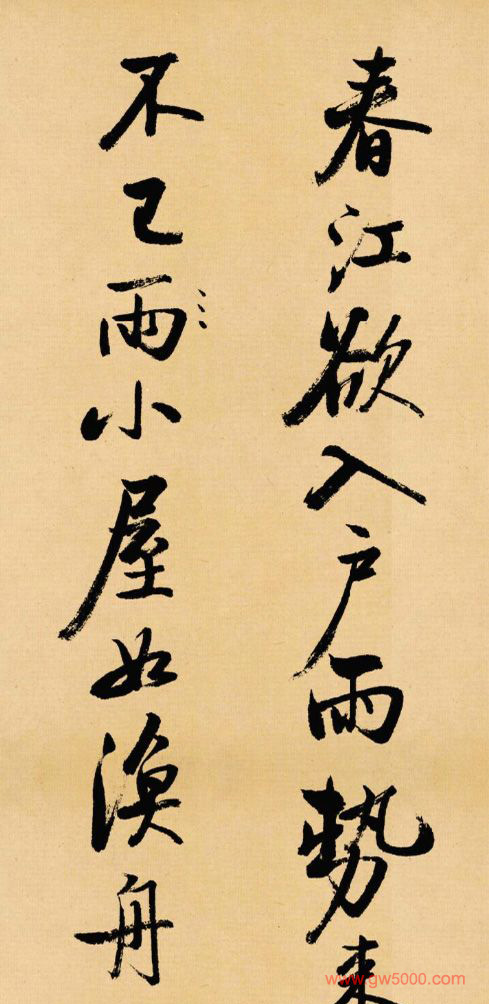 春江欲入户雨势来
不已雨小屋如渔舟
www.gw5000.com